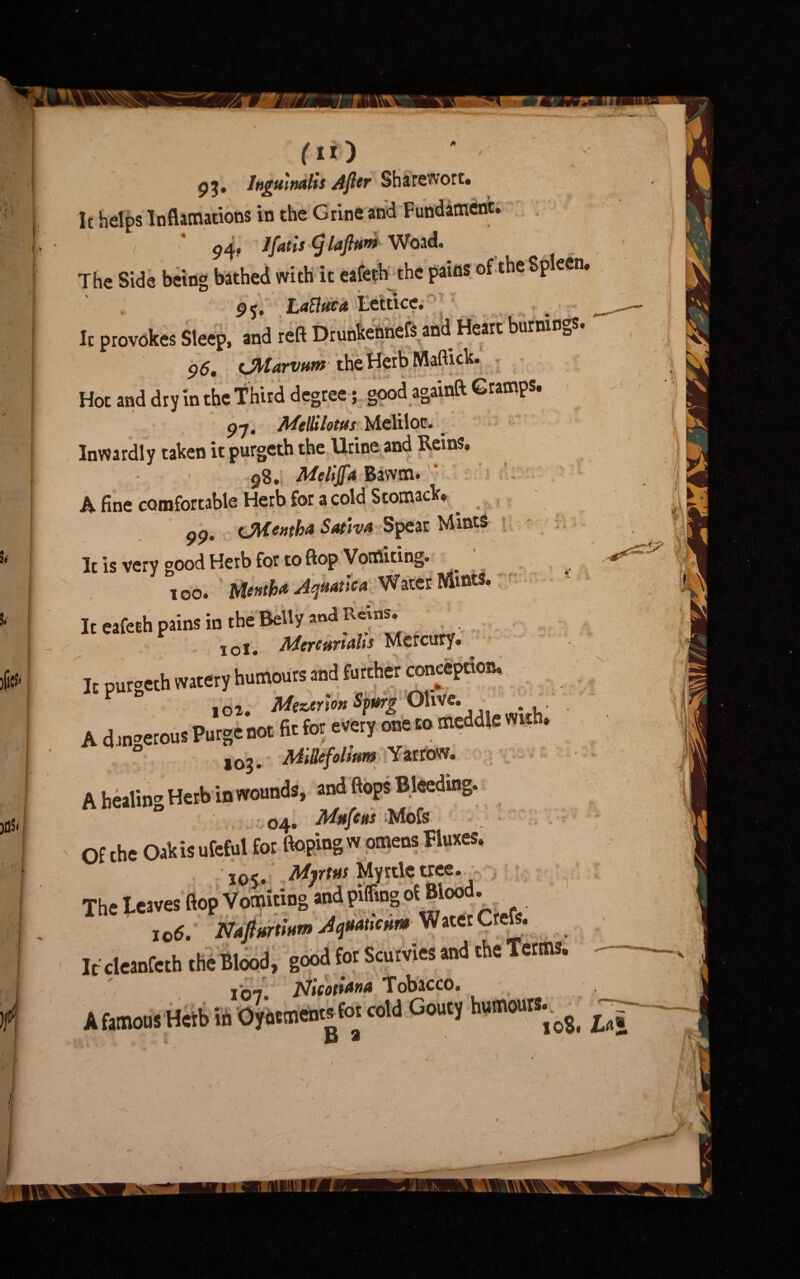 (11)
93. Inguinalis Aſter Sharewort.
It helps Inflamations in the Grine and Fundament.
94, Iſatis Glaſtum Woad.
The Side being bathed with it eaſeth the pains of the Spleen.
95. Lactuca Lettice.
It provokes Sleep, and reſt Drunkenneſs and Heart burnings.
96. Marvum the Herb Maſtick.
Hot and dry in the Third degree; good againſt Cramps.
97. Mellilotus Melilot.
Inwardly taken it purgeth the Urine and Reins.
98. Meliſſa Bawm.
A fine comfortable Herb for a cold Stomack.
99. Mentha Sativa Spear Mints
It is very good Herb for to ſtop Vomiting.
100. Mentha Aquatica Water Mints.
It eaſeth pains in the Belly and Reins.
101. Mercurialis Mercury.
It purgeth watery humours and further conception.
102. Mezerion Spurg Olive.
A dangerous Purge not fit for every one to meddle with.
103. Millefolium Yarrow.
A healing Herb in wounds, and ſtops Bleeding.
04. Muſcus Moſs
Of the Oak is uſeful for ſtoping w omens Fluxes.
105. Myrtus Myrtle tree.
The Leaves ſtop Vomiting and piſſing of Blood.
106. Naſturtium Aquaticum Water Creſs.
It cleanſeth the Blood, good for Scurvies and the Terms.
107. Nicotiana Tobacco.
A famous Herb in Oyntments for cold Gouty humours.
B 2
108. La